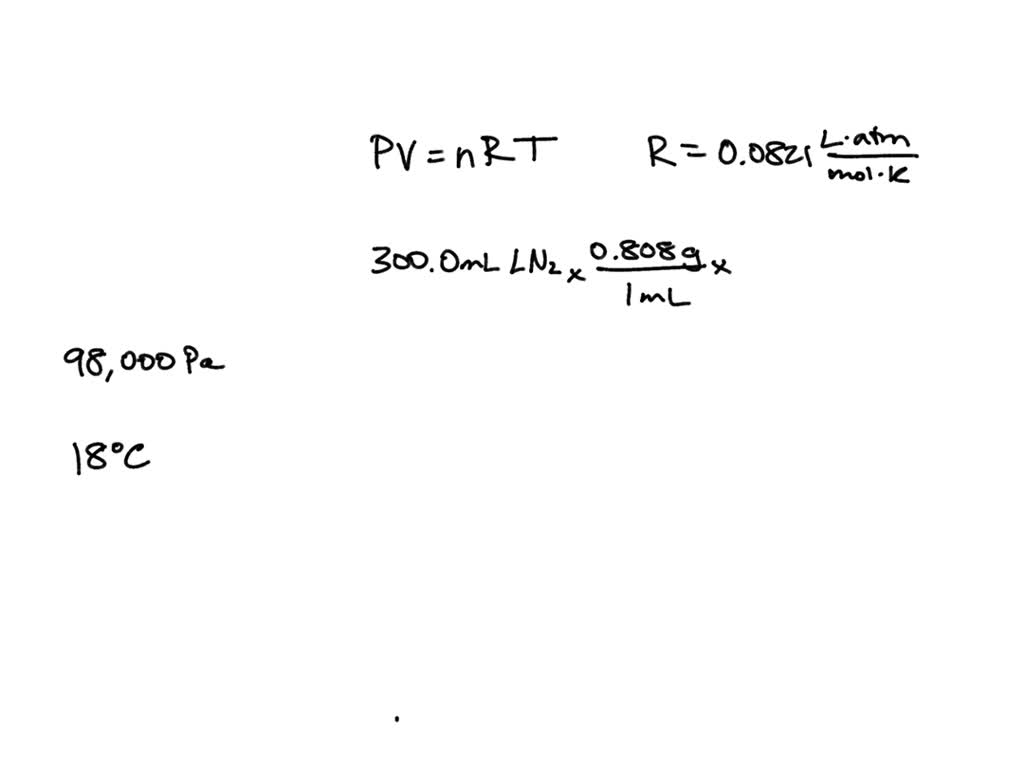 PV = nRT R = 0.0821 L·atm/mol·K
300.0mL LN₂ x 0.808g/1mL x
98,000 Pa
18°C